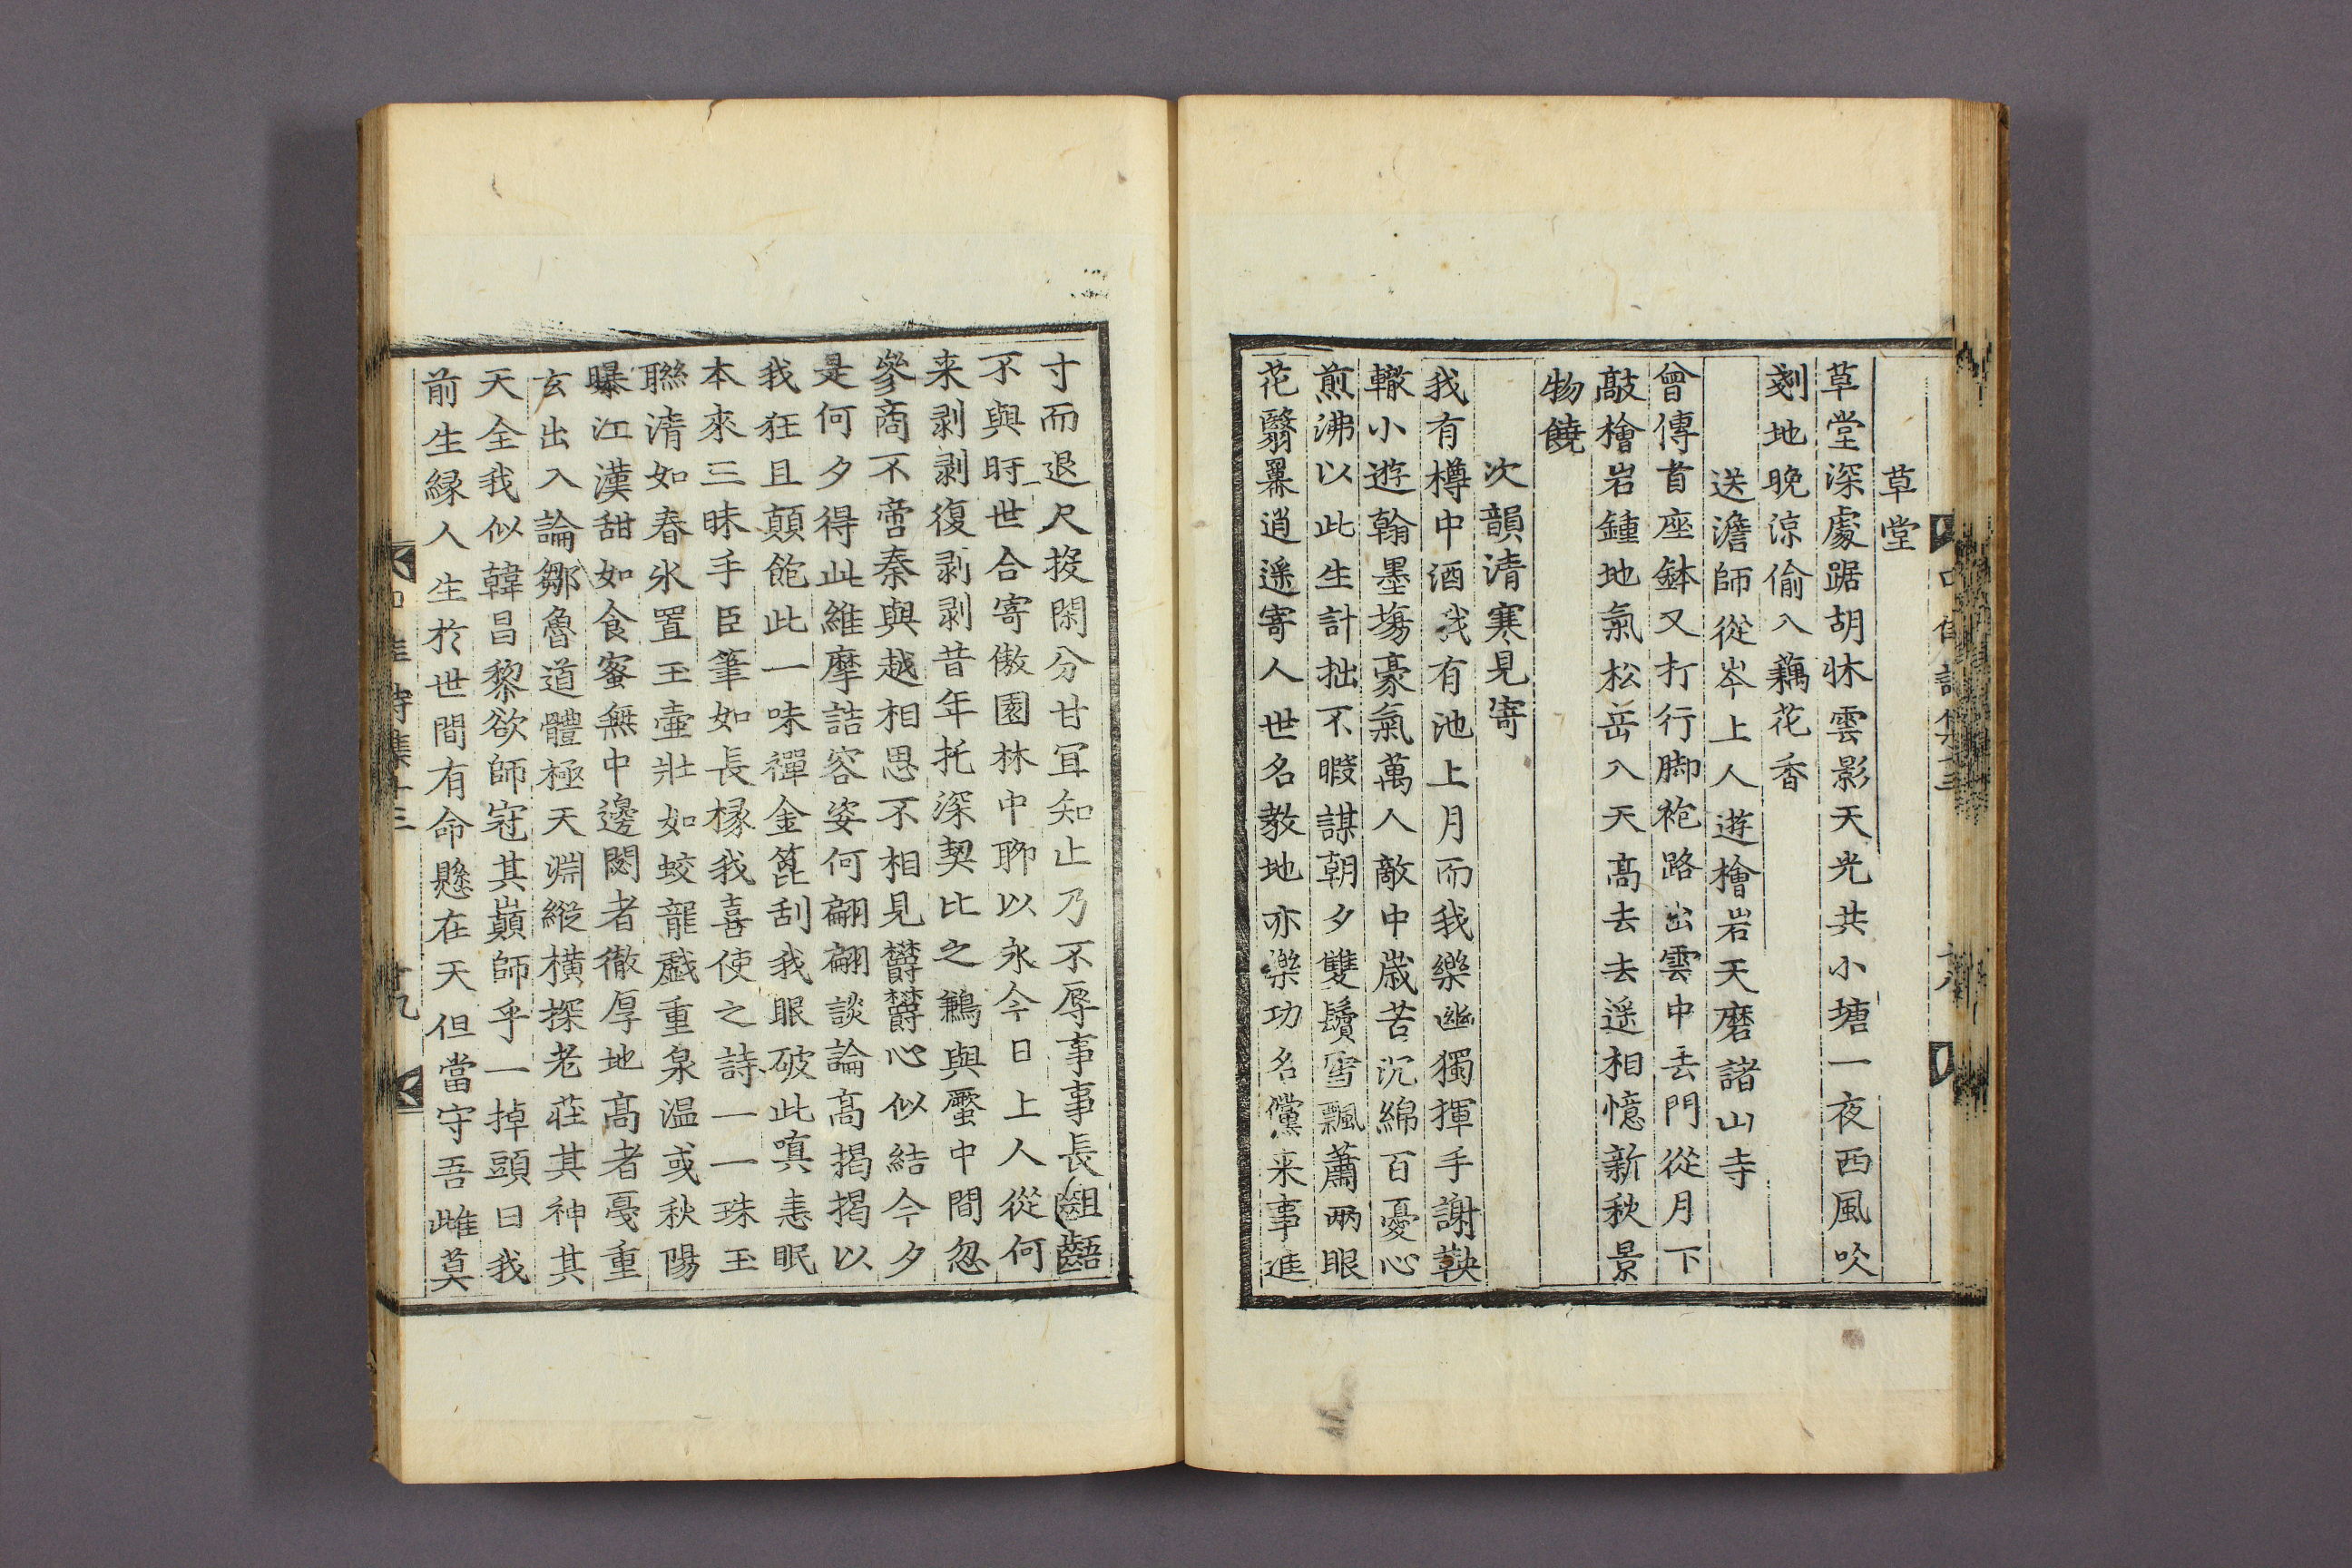 草堂
草堂深處踞胡牀雲影天光共小塘一夜西風吹
剗地晚涼偷入藕花香
送澹師從岑上人遊檜岩天磨諸山寺
曾傳首座鉢又打行脚袍路出雲中去門從月下
敲檜岩鍾地氣松岳入天高去去遥相憶新秋景
物饒
次韻清寒見寄
我有樽中酒我有池上月而我樂幽獨揮手謝鞅
轍小遊翰墨塲豪氣萬人敵中歲苦沉綿百憂心
煎沸以此生計拙不暇謀朝夕雙鬢雪飄蕭兩眼
花翳羃逍遥寄人世名敎地亦樂功名儻来事進
寸而退尺投閑分甘冝知止乃不辱事事長齟齬
不與時世合寄傲園林中聊以永今日上人從何
来剥剥復剥剥昔年托深契比之鶼與蟨中間忽
參商不啻秦與越相思不相見欝欝心似結今夕
是何夕得此維摩詰容姿何翩翩談論高揭揭以
我狂且顛飽此一味禪金篦刮我眼破此嗔恚眠
本來三昧手臣筆如長椽我喜使之詩一一珠玉
聯清如春氷置玉壷壯如蛟龍戱重泉温或秋陽
曝江漢甜如食蜜無中邊閎者徹厚地高者戞重
玄出入論鄒魯道體極天淵縱橫探老莊其神其
天全我似韓昌黎欲師冠其巔師乎一掉頭曰我
前生緣人生於世間有命懸在天但當守吾雌莫
詩集十三
十九